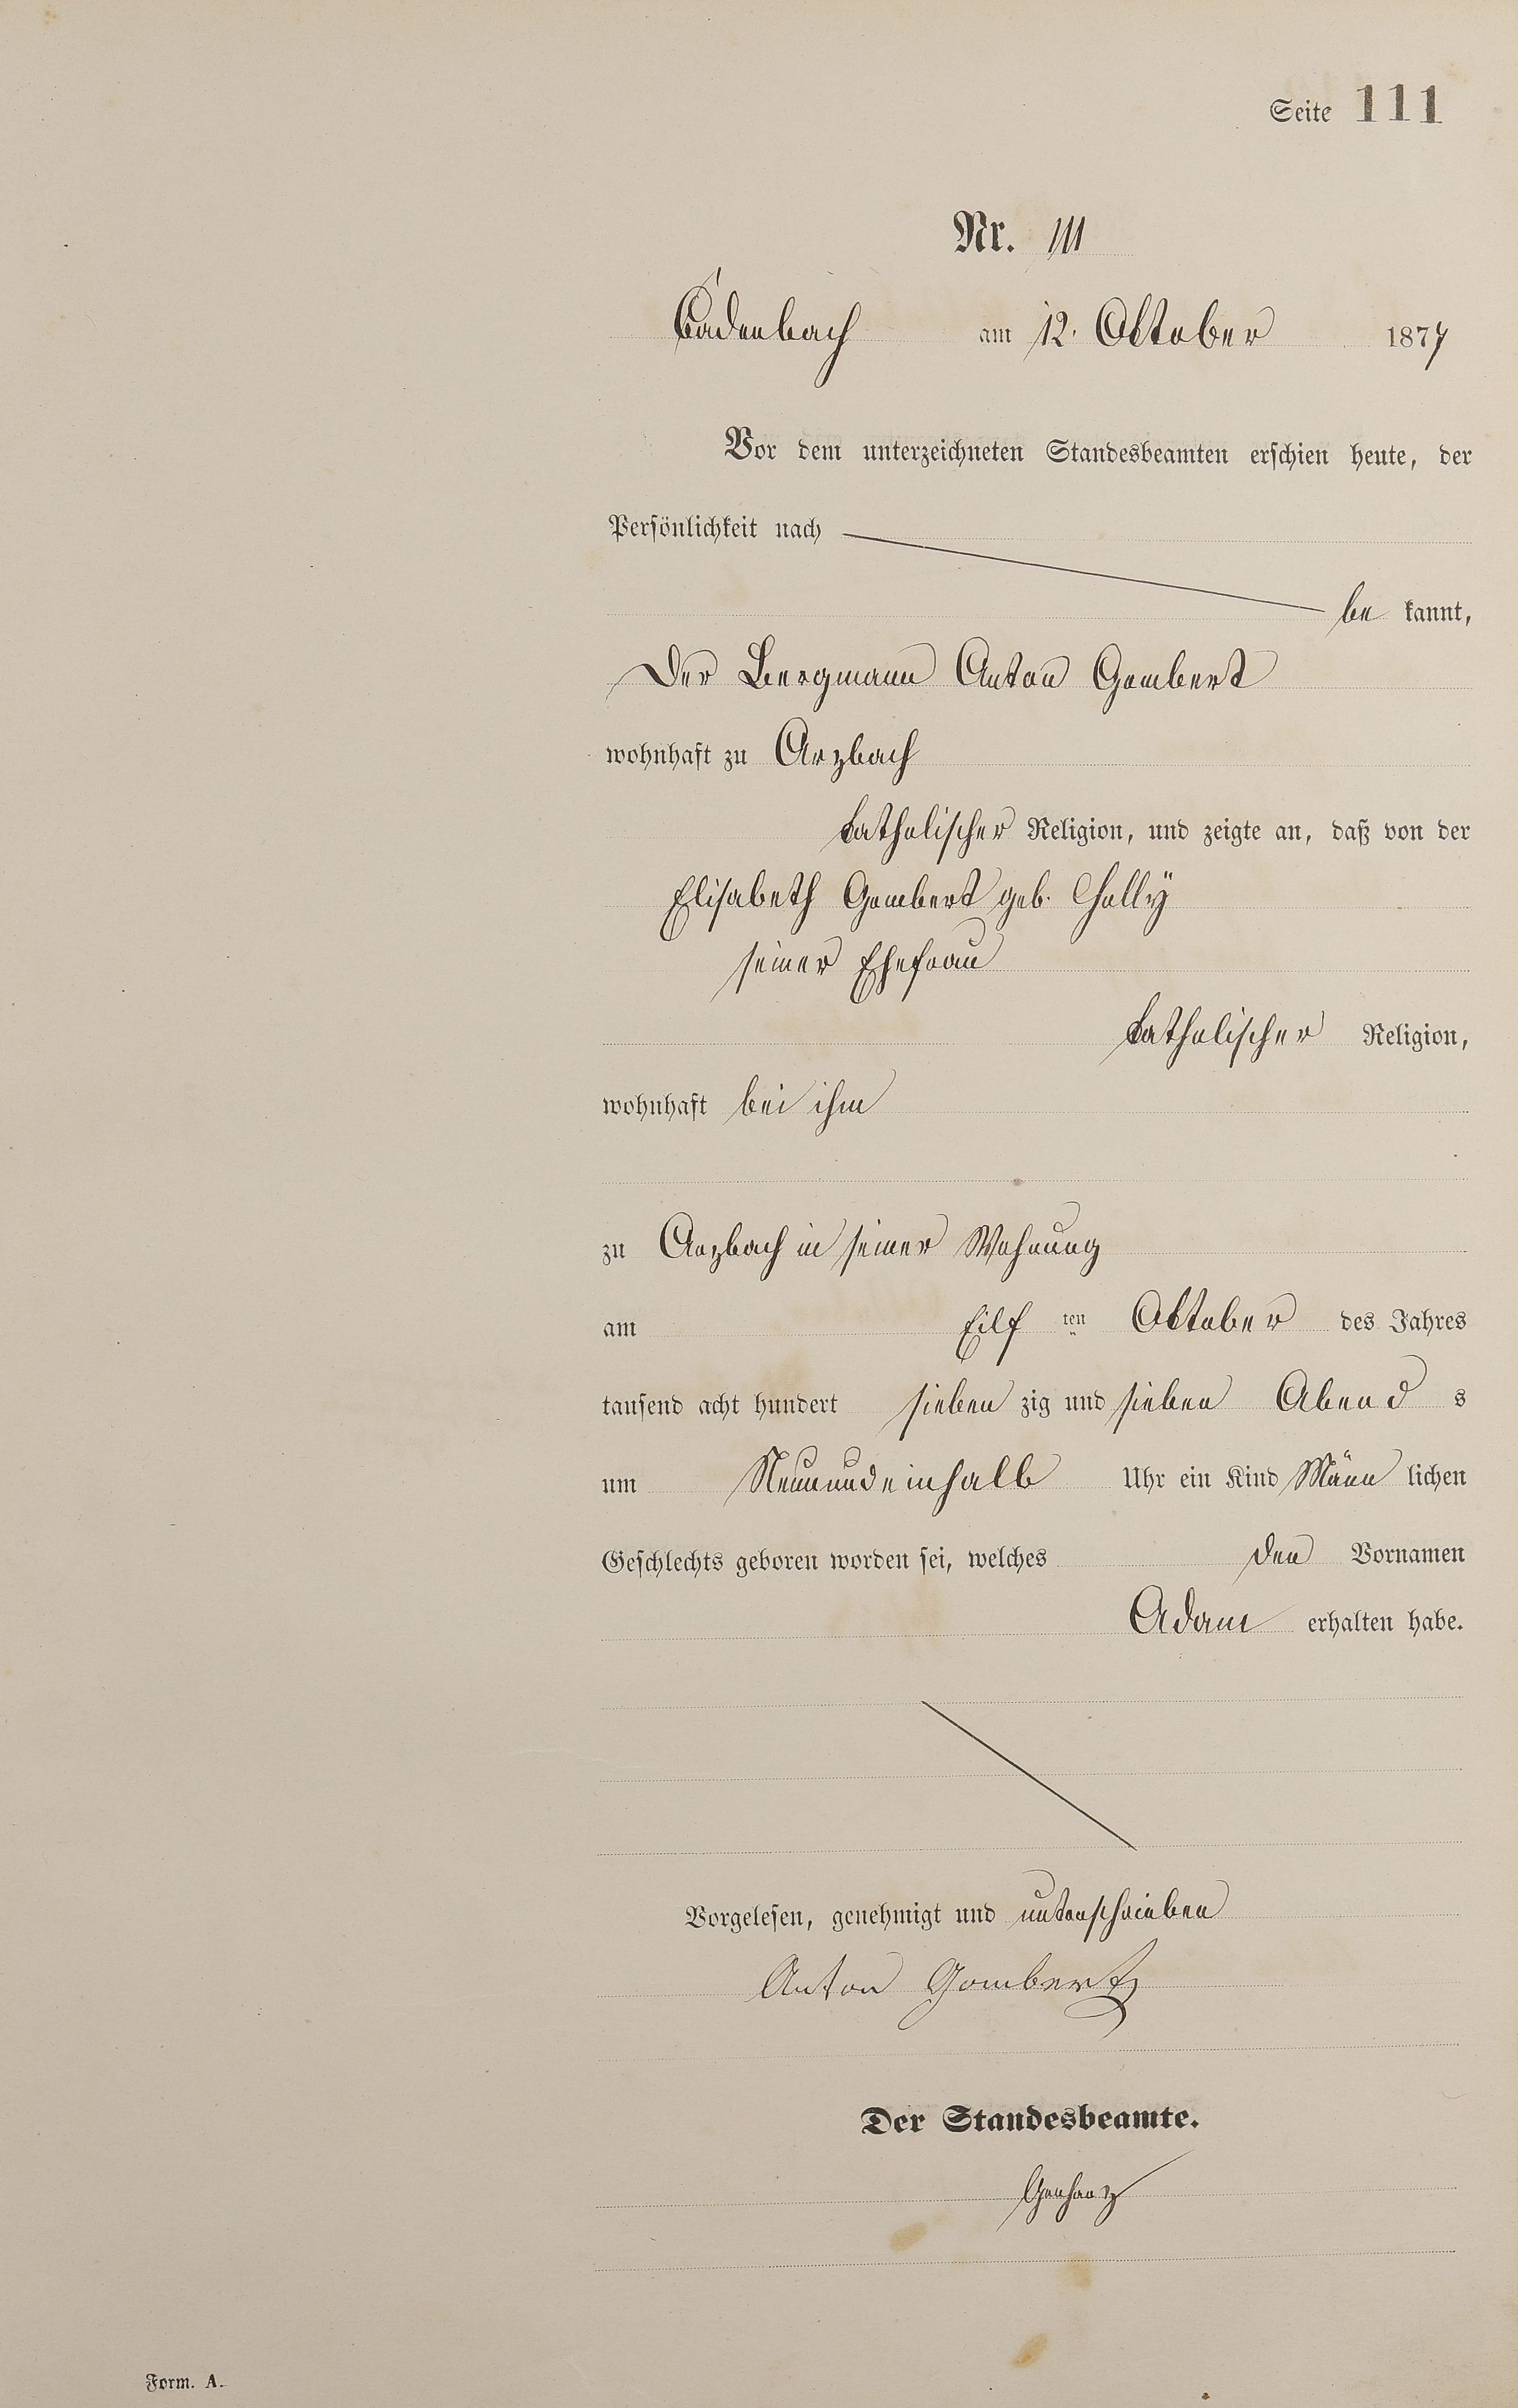 Seite 111
Nr. 111
Cadenbach am 12. Oktober 1877
Vor dem unterzeichneten Standesbeamten erschien heute, der
Persönlichkeit nach
be kannt,
Der Bergmann Anton Gombert
wohnhaft zu Arzbach
katholischer Religion, und zeigte an, daß von der
Elisabeth Gombert geb. Cholly
seiner Ehefrau
katholischer Religion,
wohnhaft bei ihm
zu Arzbach in seiner Wohnung
am Eilf ten Oktober des Jahres
tausend acht hundert sieben zig und sieben Abend s
um Neunundeinhalb Uhr ein Kind Männ lichen
Geschlechts geboren worden sei, welches den Vornamen
Adam erhalten habe.
Vorgelesen, genehmigt und unterschrieben
Anton Gombert
Der Standesbeamte.
Form. A.